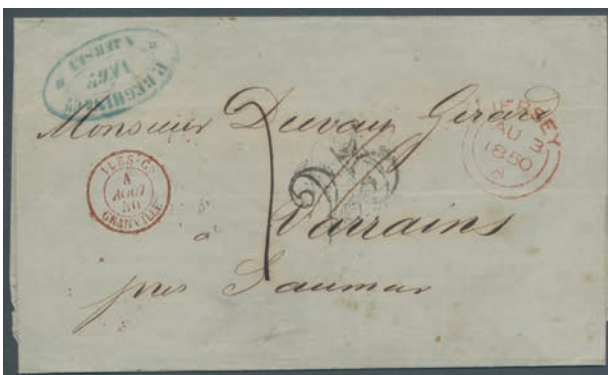 JERSEY
AU 3
1850
Monsieur Duvau Girard
ILES-C.
4
AOUT
50
GRANVILLE
Varrains
a
près Saumur